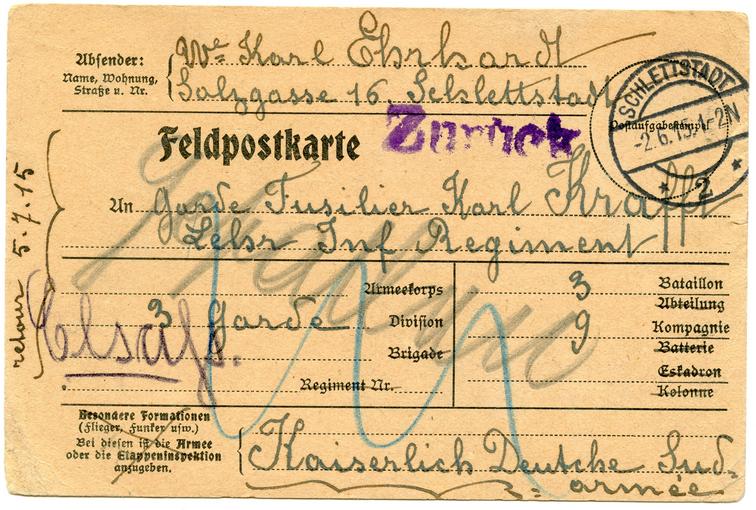 Absender:
Name, Wohnung,
Straße u. Nr.
We Karl Ehrhardt
Salzgasse 16, Schlettstadt
SCHLETTSTADT
-2.6.15.1-2N
* 2 *
Postaufgabestempel
Feldpostkarte
Zurück
retour 5.7.15
An Garde Fusilier Karl Krafft
Lehr Inf Regiment
Armeekorps
3 Garde Division
Brigade
Regiment Nr.
Elsaß.
3 Bataillon
Abteilung
9 Kompagnie
Batterie
Eskadron
Kolonne
Besondere Formationen
(Flieger, Funker usw.)
Bei diesen ist die Armee
oder die Etappeninspektion
anzugeben.
Kaiserlich Deutche Sud-
armée